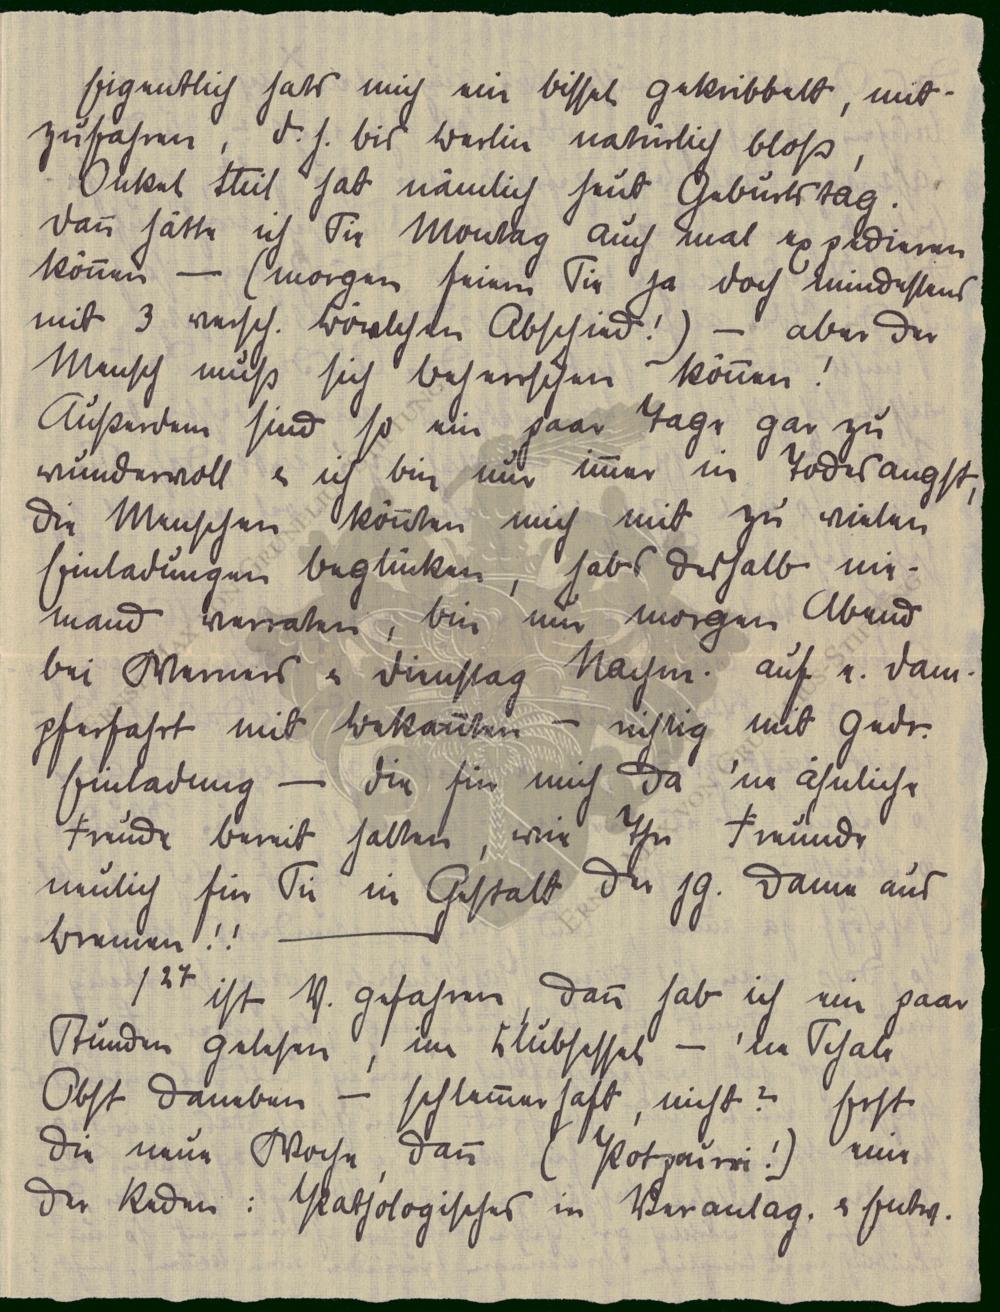 Eigentlich hats mich ein bissel gekribbelt, mit-
zufahren, d. h. bis Berlin natürlich bloß,
Onkel Stiel hat nämlich heut Geburtstag.
Dann hätte ich Sie Montag auch mal expedieren
können — (morgen feiern Sie ja doch mindestens
mit 3 versch. Abschied!) — aber der
Mensch muß sich beherrschen können!
Außerdem sind so ein paar Tage gar zu
wundervoll & ich bin nur immer in Todesangst,
die Menschen könnten mich mit zu vielen
Einladungen beglücken, habs deshalb nie-
mand verraten, bin nur morgen Abend
bei Werners & Dienstag Nachm. auf e. Dam-
pferfahrt mit Bekannten — richtig mit gedr.
Einladung — die für mich da 'ne ähnliche
Freude bereit halten, wie Ihr Freunde
neulich für Sie in Gestalt der jg. Dame aus
Bremen!! —
1 27 ist V. gefahren, dann hab ich ein paar
Stunden gelesen, im Klubsessel — 'ne Schale
Obst daneben — schlemmerhaft, nicht? Erst
die neue Woche, dann (Potpourri!) eine
der Reden: Pathologisches in Veranlag. & Entw.
ERNST MAX VON GRUNELIUS STIFTUNG
ERNST MAX VON GRUNELIUS STIFTUNG